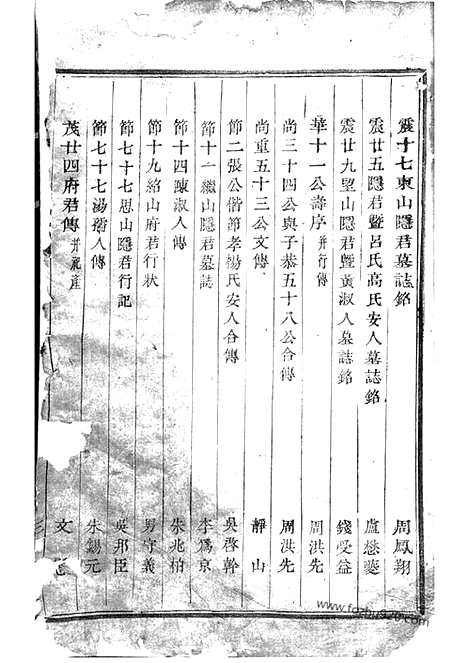 震十七東山隱君墓誌銘 周鳳翔
震廿五隱君暨呂氏高氏安人墓誌銘 盧懋
震廿九望山隱君暨黃淑人墓誌銘 錢受益
華十一公壽序 并行傳 周洪先
尚三十四公與子恭五十八公合傳 周洪先
尚重五十三公文傳 靜山
節二張公偕節孝楊氏安人合傳 吳啓幹
節十一繼山隱君墓誌 李爲京
節十四陳淑人傳 朱兆柏
節十九紹山府君行狀 男守義
節七十七思山隱君行記 吳邦臣
節七十七湯孺人傳 朱錫元
茂廿四府君傳 并祀產 文